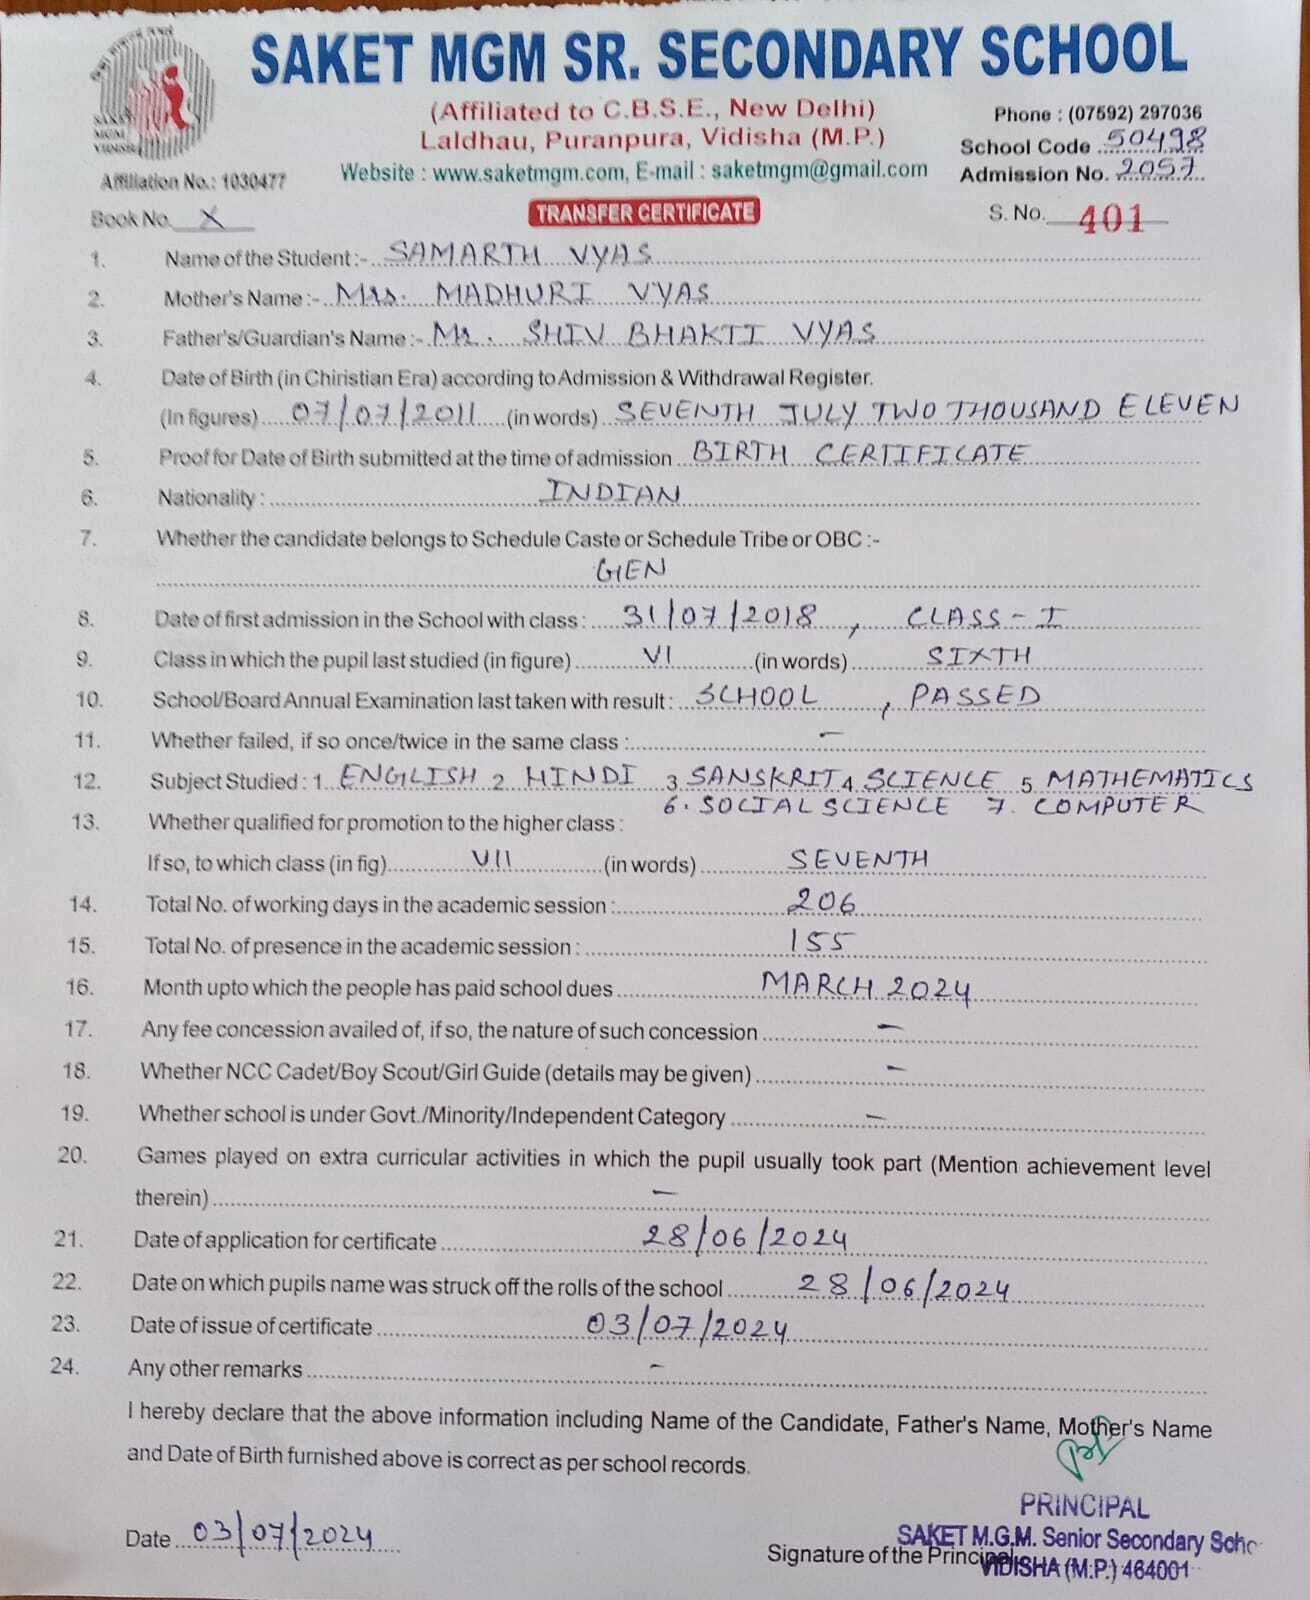 SAKET MGM SR. SECONDARY SCHOOL
(Affiliated to C.B.S.E., New Delhi)
Laldhau, Puranpura, Vidisha (M.P.)
Website : www.saketmgm.com, E-mail : saketmgm@gmail.com
SAKET
MGM
VIDISHA
Affiliation No.: 1030477
Phone : (07592) 297036
School Code 50498
Admission No. 2057
Book No. X
TRANSFER CERTIFICATE
S. No. 401
1. Name of the Student :- SAMARTH VYAS
2. Mother's Name :- Mrs. MADHURI VYAS
3. Father's/Guardian's Name :- Mr. SHIV BHAKTI VYAS
4. Date of Birth (in Chiristian Era) according to Admission & Withdrawal Register.
(In figures) 07/07/2011 (in words) SEVENTH JULY TWO THOUSAND ELEVEN
5. Proof for Date of Birth submitted at the time of admission BIRTH CERTIFICATE
6. Nationality : INDIAN
7. Whether the candidate belongs to Schedule Caste or Schedule Tribe or OBC :-
GEN
8. Date of first admission in the School with class : 31/07/2018, CLASS - I
9. Class in which the pupil last studied (in figure) VI (in words) SIXTH
10. School/Board Annual Examination last taken with result : SCHOOL, PASSED
11. Whether failed, if so once/twice in the same class : -
12. Subject Studied : 1 ENGLISH 2 HINDI 3 SANSKRIT 4 SCIENCE 5 MATHEMATICS
6. SOCIAL SCIENCE 7. COMPUTER
13. Whether qualified for promotion to the higher class :
If so, to which class (in fig) VII (in words) SEVENTH
14. Total No. of working days in the academic session : 206
15. Total No. of presence in the academic session : 155
16. Month upto which the people has paid school dues MARCH 2024
17. Any fee concession availed of, if so, the nature of such concession -
18. Whether NCC Cadet/Boy Scout/Girl Guide (details may be given) -
19. Whether school is under Govt./Minority/Independent Category -
20. Games played on extra curricular activities in which the pupil usually took part (Mention achievement level
therein) -
21. Date of application for certificate 28/06/2024
22. Date on which pupils name was struck off the rolls of the school 28/06/2024
23. Date of issue of certificate 03/07/2024
24. Any other remarks -
I hereby declare that the above information including Name of the Candidate, Father's Name, Mother's Name
and Date of Birth furnished above is correct as per school records.
Date 03/07/2024
PRINCIPAL
SAKET M.G.M. Senior Secondary Scho
Signature of the Principal
VIDISHA (M.P.) 464001